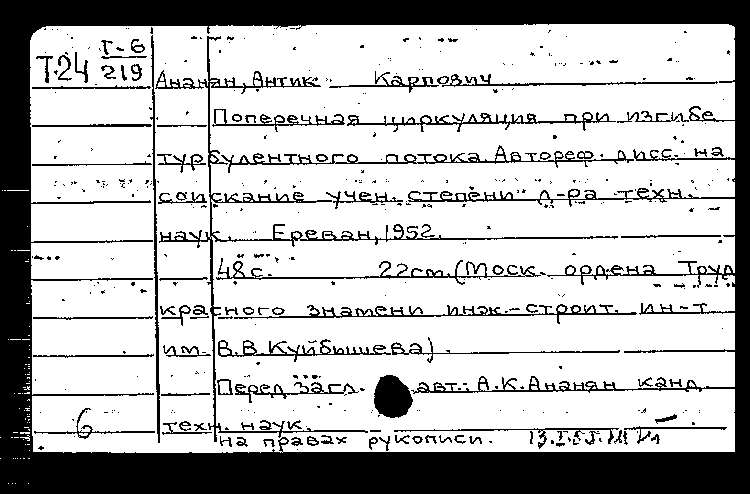 Г-6
Т.24 219
Ананян, Антик Карпович
Поперечная циркуляция при изгибе
турбулентного потока. Автореф. дисс. на
соискание учен. степени д-ра техн.
наук. Ереван, 1952.
48 с. 22 cm. (Моск. ордена Труд
красного знамени инж.-строит. ин-т
им. В.В. Куйбишева).
Перед загл. авт.: А.К. Ананян канд.
6 техн. наук.
на правах рукописи.